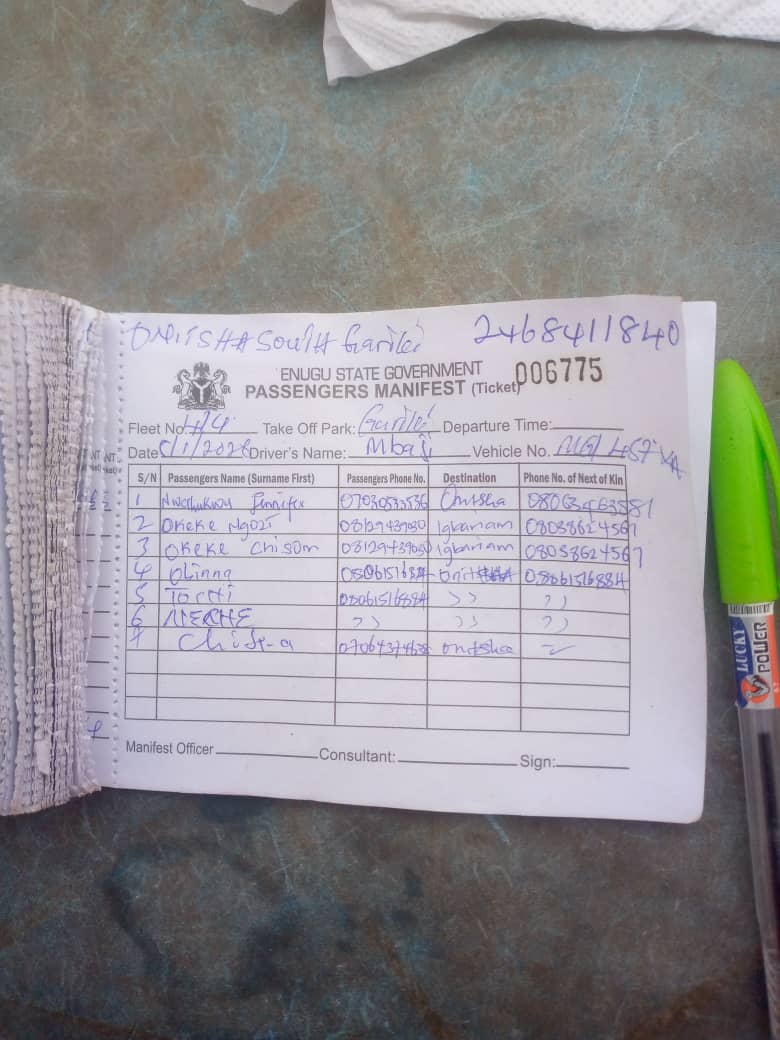 ONITSHA South Gariki 2468411840
ENUGU STATE GOVERNMENT 006775
PASSENGERS MANIFEST (Ticket)
Fleet No. Take Off Park: Gariki Departure Time:
Date Driver's Name: Mbaji Vehicle No.
S/N Passengers Name (Surname First) Passengers Phone No. Destination Phone No. of Next of Kin
1 Nwachukwu Jennifer Onitsha
2 Okeke Ngozi 08129439050 Igbariam 08038624567
3 Okeke Chisom 08129439050 Igbariam 08038624567
4 Obinna 08061516884 Onitsha 08061516884
5 Tochi 08061516884 ,, ,,
6 ,, ,, ,,
7 Onitsha
Manifest Officer Consultant: Sign:
LUCKY
POWER